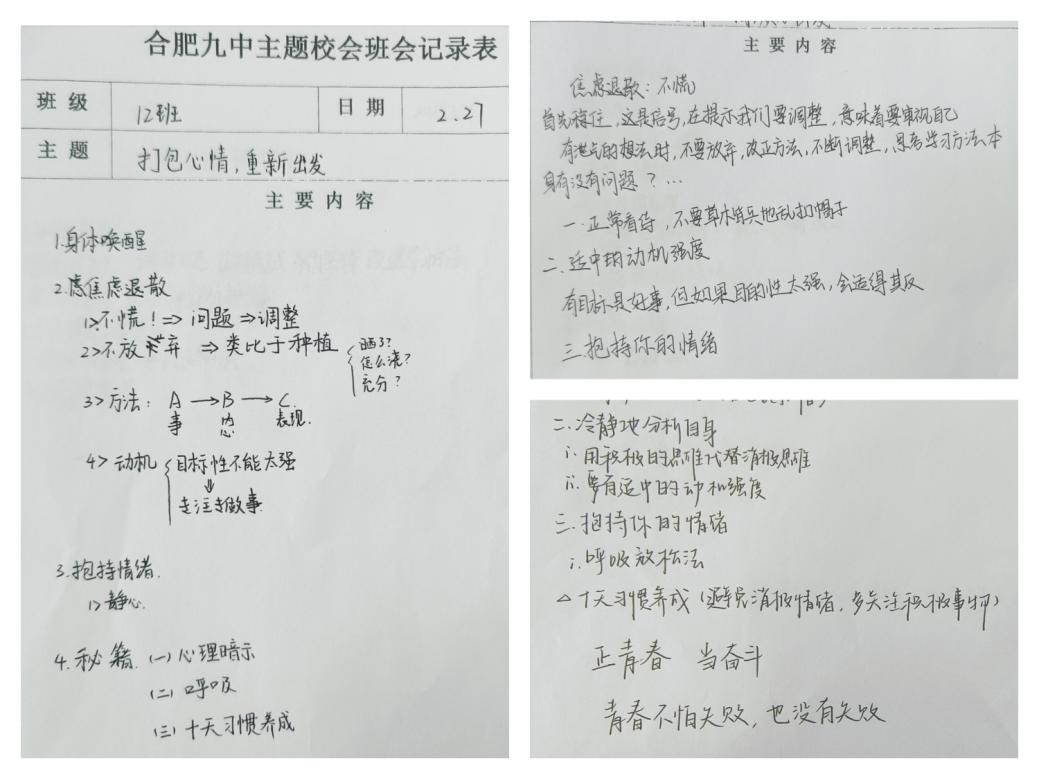 合肥九中主题校会班会记录表
班级 12班 日期 2.27
主题 打包心情,重新出发
主要内容
1.身体唤醒
2.焦虑退散
1>不慌!⇒问题⇒调整
2>不放弃 ⇒类比于种植 晒了?
怎么浇?
充分?
3>方法: A→B→C
事 内心 表现.
4>动机 目标性不能太强
⇓
专注去做事
3.抱持情绪.
1>静心.
4.秘籍.(一)心理暗示
(二)呼吸
(三)十天习惯养成
主要内容
焦虑退散:不慌
首先稳住,这是信号,在提示我们要调整,意味着要审视自己
有泄气的想法时,不要放弃,改正方法,不断调整,思考学习方法本
身有没有问题?...
一.正常看待,不要草木皆兵地乱扣帽子
二.适中的动机强度
有目标是好事,但如果目的性太强,会适得其反
三.抱持你的情绪
二.冷静地分析自身
i.用积极的思维代替消极思维
ii.要有适中的动机强度
三.抱持你的情绪
i.呼吸放松法
△十天习惯养成(避免消极情绪,多关注积极事物)
正青春 当奋斗
青春不怕失败,也没有失败